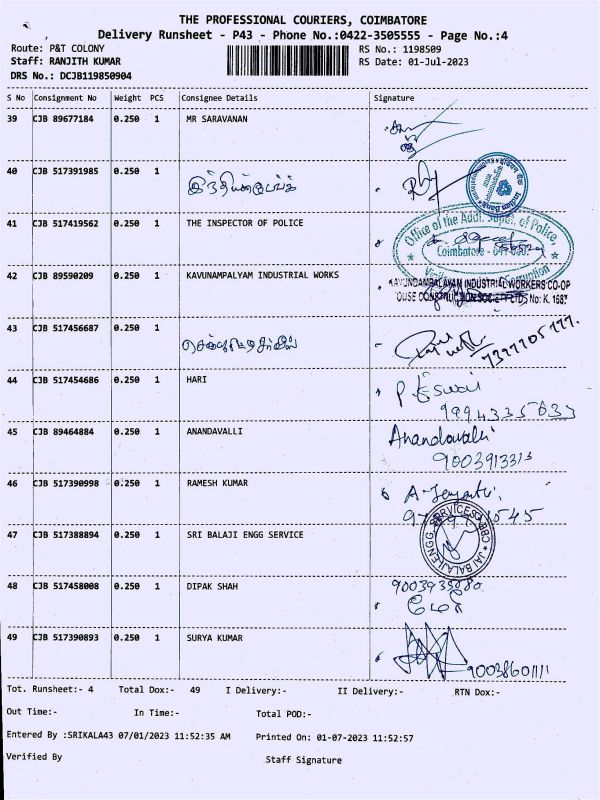 THE PROFESSIONAL COURIERS, COIMBATORE
Delivery Runsheet - P43 - Phone No.:0422-3505555 - Page No.:4
Route: P&T COLONY
RS No.: 1198509
Staff: RANJITH KUMAR
RS Date: 01-Jul-2023
DRS No.: DCJB119850904
S No Consignment No Weight PCS Consignee Details Signature
39 CJB 89677184 0.250 1 MR SARAVANAN
40 CJB 517391985 0.250 1
41 CJB 517419562 0.250 1 THE INSPECTOR OF POLICE
Office of the Addl. Supt. of Police,
Coimbatore
42 CJB 89590209 0.250 1 KAVUNAMPALYAM INDUSTRIAL WORKS
KAVUNDAMPALAYAM INDUSTRIAL WORKERS CO-OP
OUSE CONSTRUCTION SOCIETY LTD No: K. 1687
43 CJB 517456687 0.250 1
44 CJB 517454686 0.250 1 HARI
45 CJB 89464884 0.250 1 ANANDAVALLI Anandavalli
9003913313
46 CJB 517390998 0.250 1 RAMESH KUMAR
47 CJB 517388894 0.250 1 SRI BALAJI ENGG SERVICE
48 CJB 517458008 0.250 1 DIPAK SHAH
49 CJB 517390893 0.250 1 SURYA KUMAR
Tot. Runsheet:- 4 Total Dox:- 49 I Delivery:- II Delivery:- RTN Dox:-
Out Time:- In Time:- Total POD:-
Entered By :SRIKALA43 07/01/2023 11:52:35 AM Printed On: 01-07-2023 11:52:57
Verified By Staff Signature